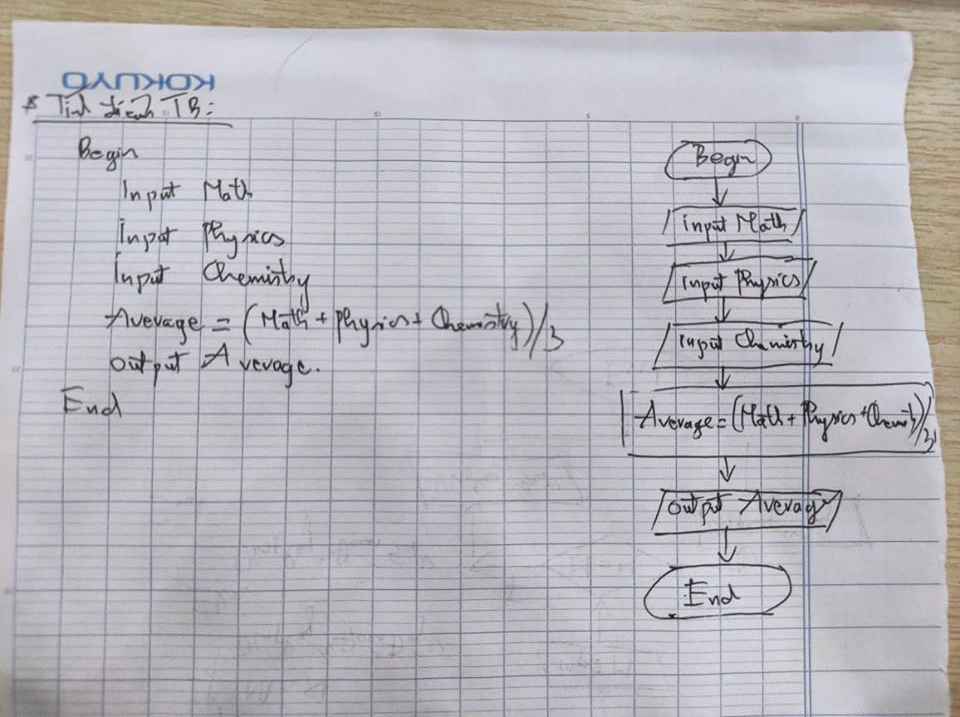 KOKUYO
* Tính điểm TB:
Begin
Input Math
Input Physics
Input Chemistry
Average = (Math + Physics + Chemistry)/3
Output Average.
End
Begin
Input Math
Input Physics
Input Chemistry
Average = (Math + Physics + Chemist)/3
Output Average
End